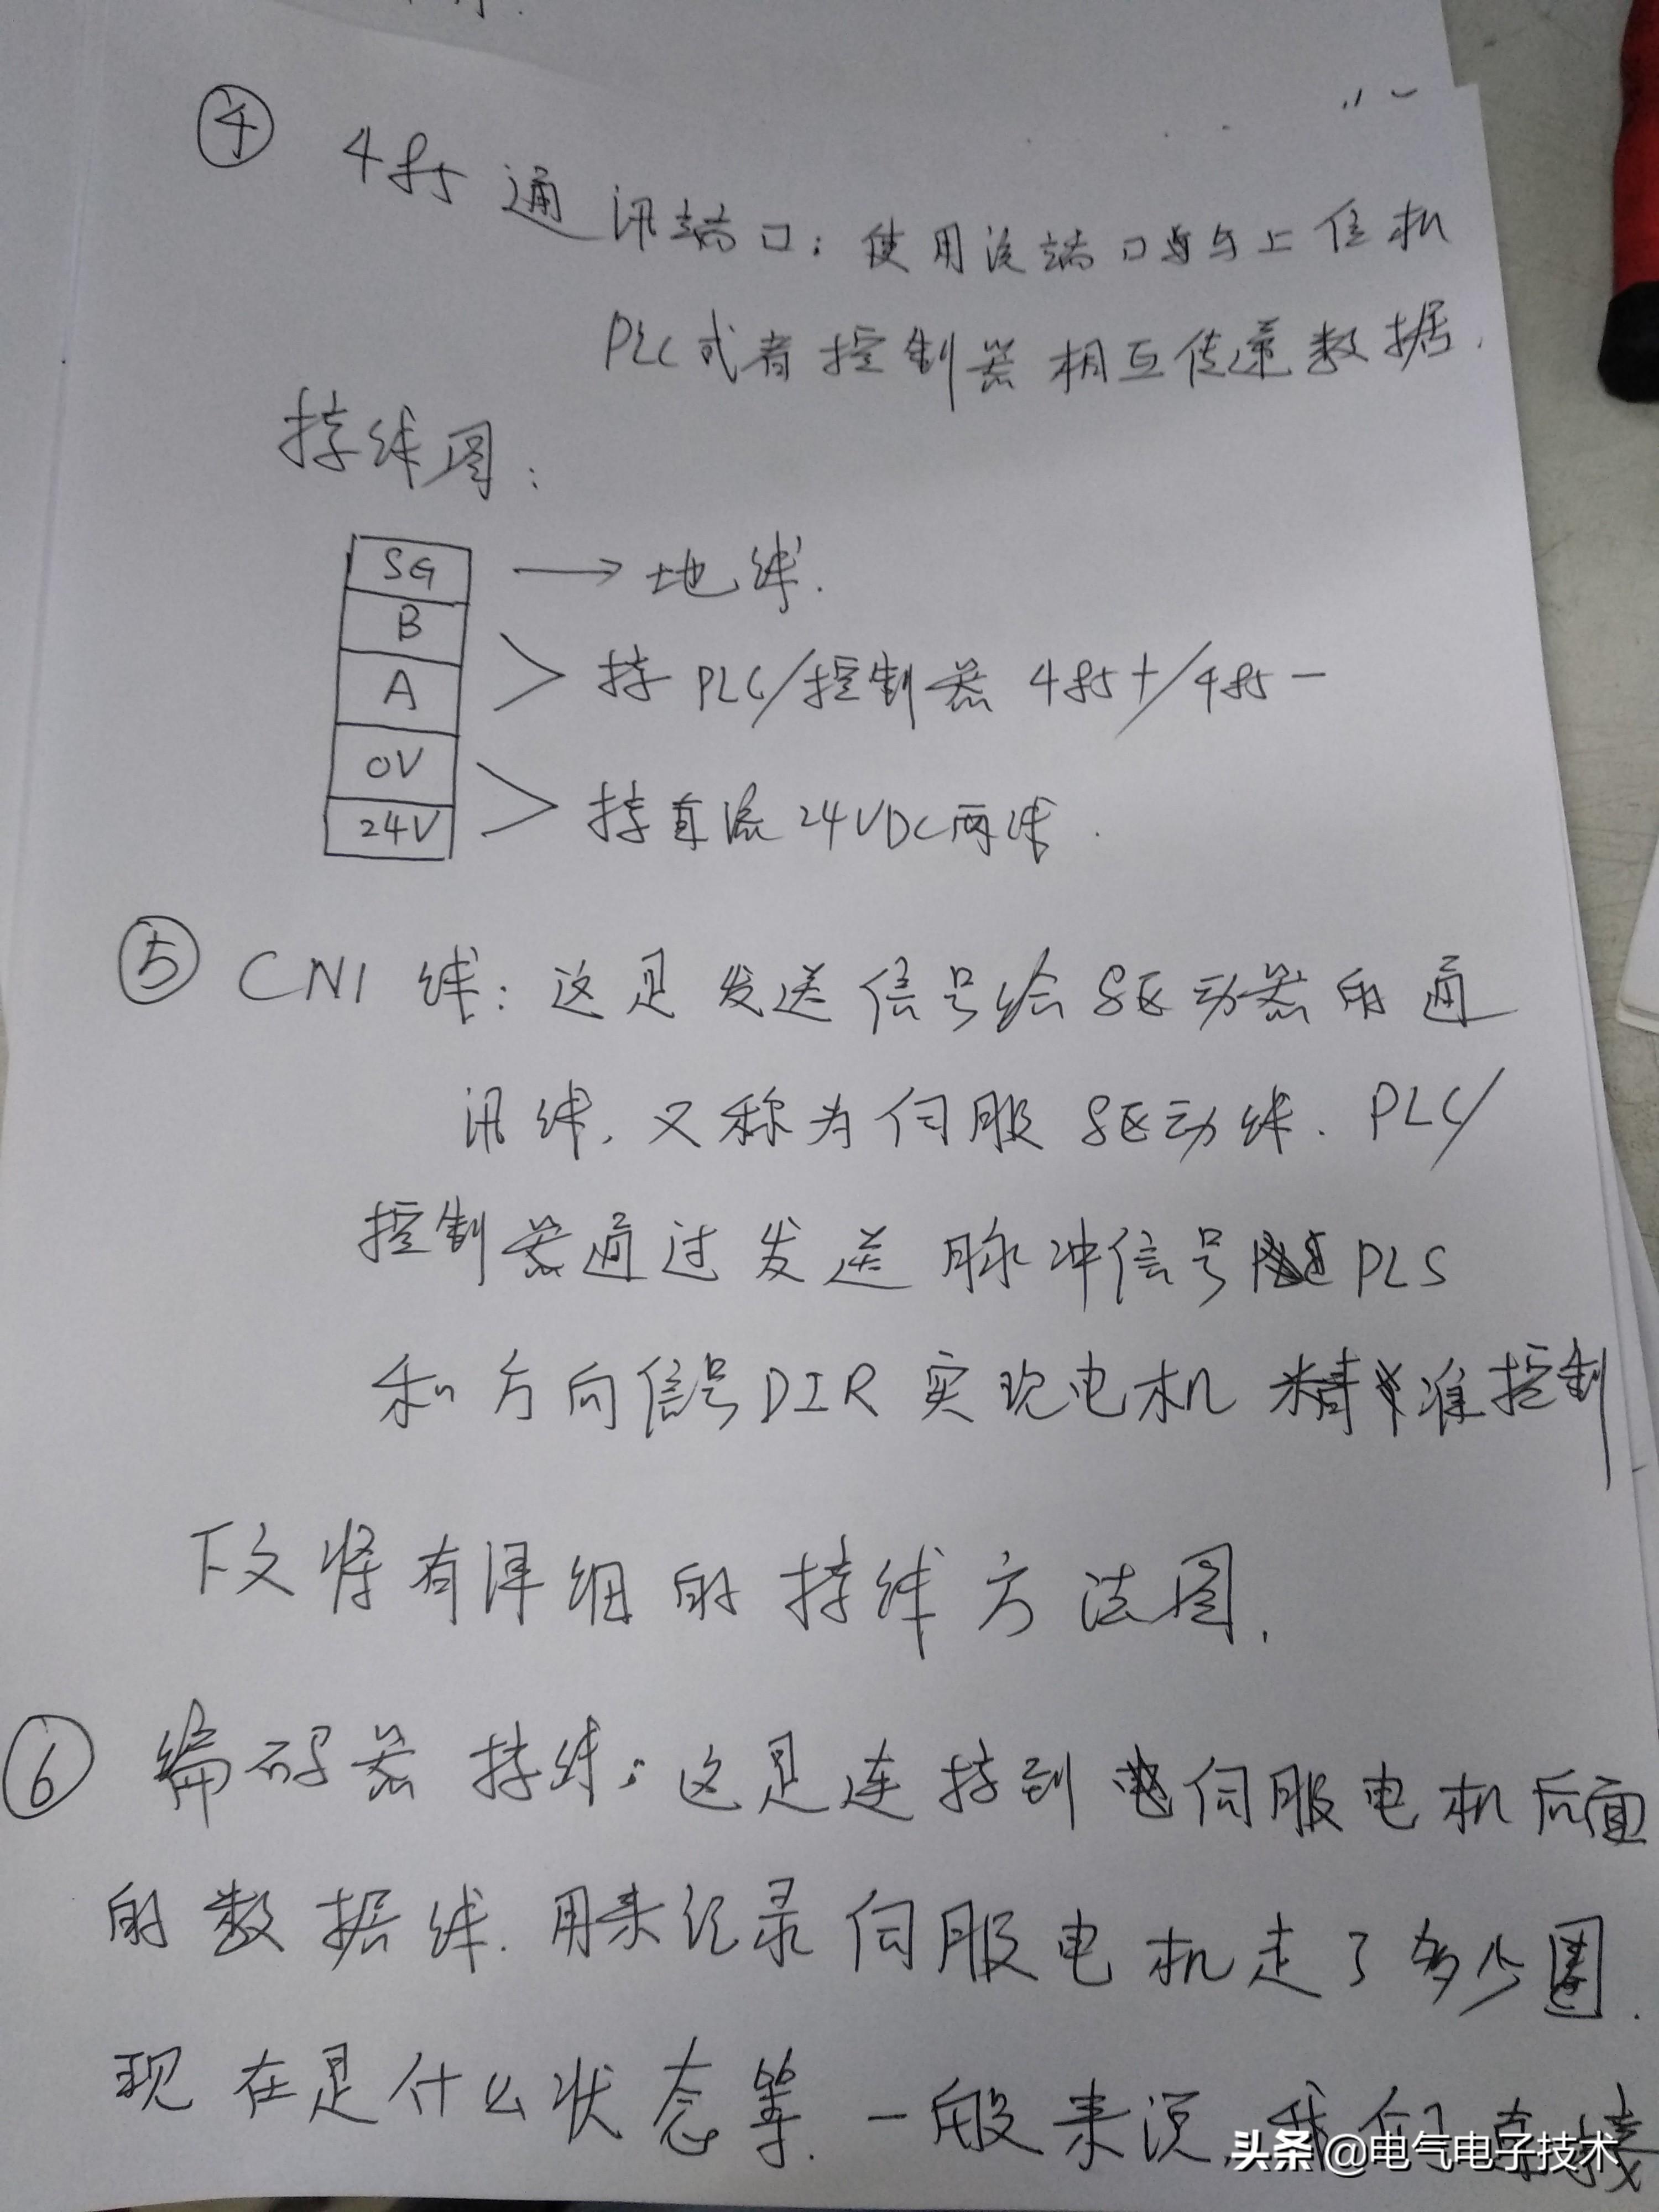 ④ 485通讯端口：使用该端口与上位机
PLC或者控制器相互传递数据.
接线图：
SG → 地线.
B
A
接PLC/控制器 485+/485-
0V
24V
接直流24VDC两线.
⑤ CN1线：这是发送信号给驱动器的通
讯线，又称为伺服驱动线. PLC/
控制器通过发送脉冲信号PLS
和方向信号DIR实现电机精准控制
下文将有详细的接线方法图.
⑥ 编码器接线：这是连接到伺服电机后面
的数据线. 用来记录伺服电机走了多少圈.
现在是什么状态等. 一般来说, 我们直接
头条@电气电子技术